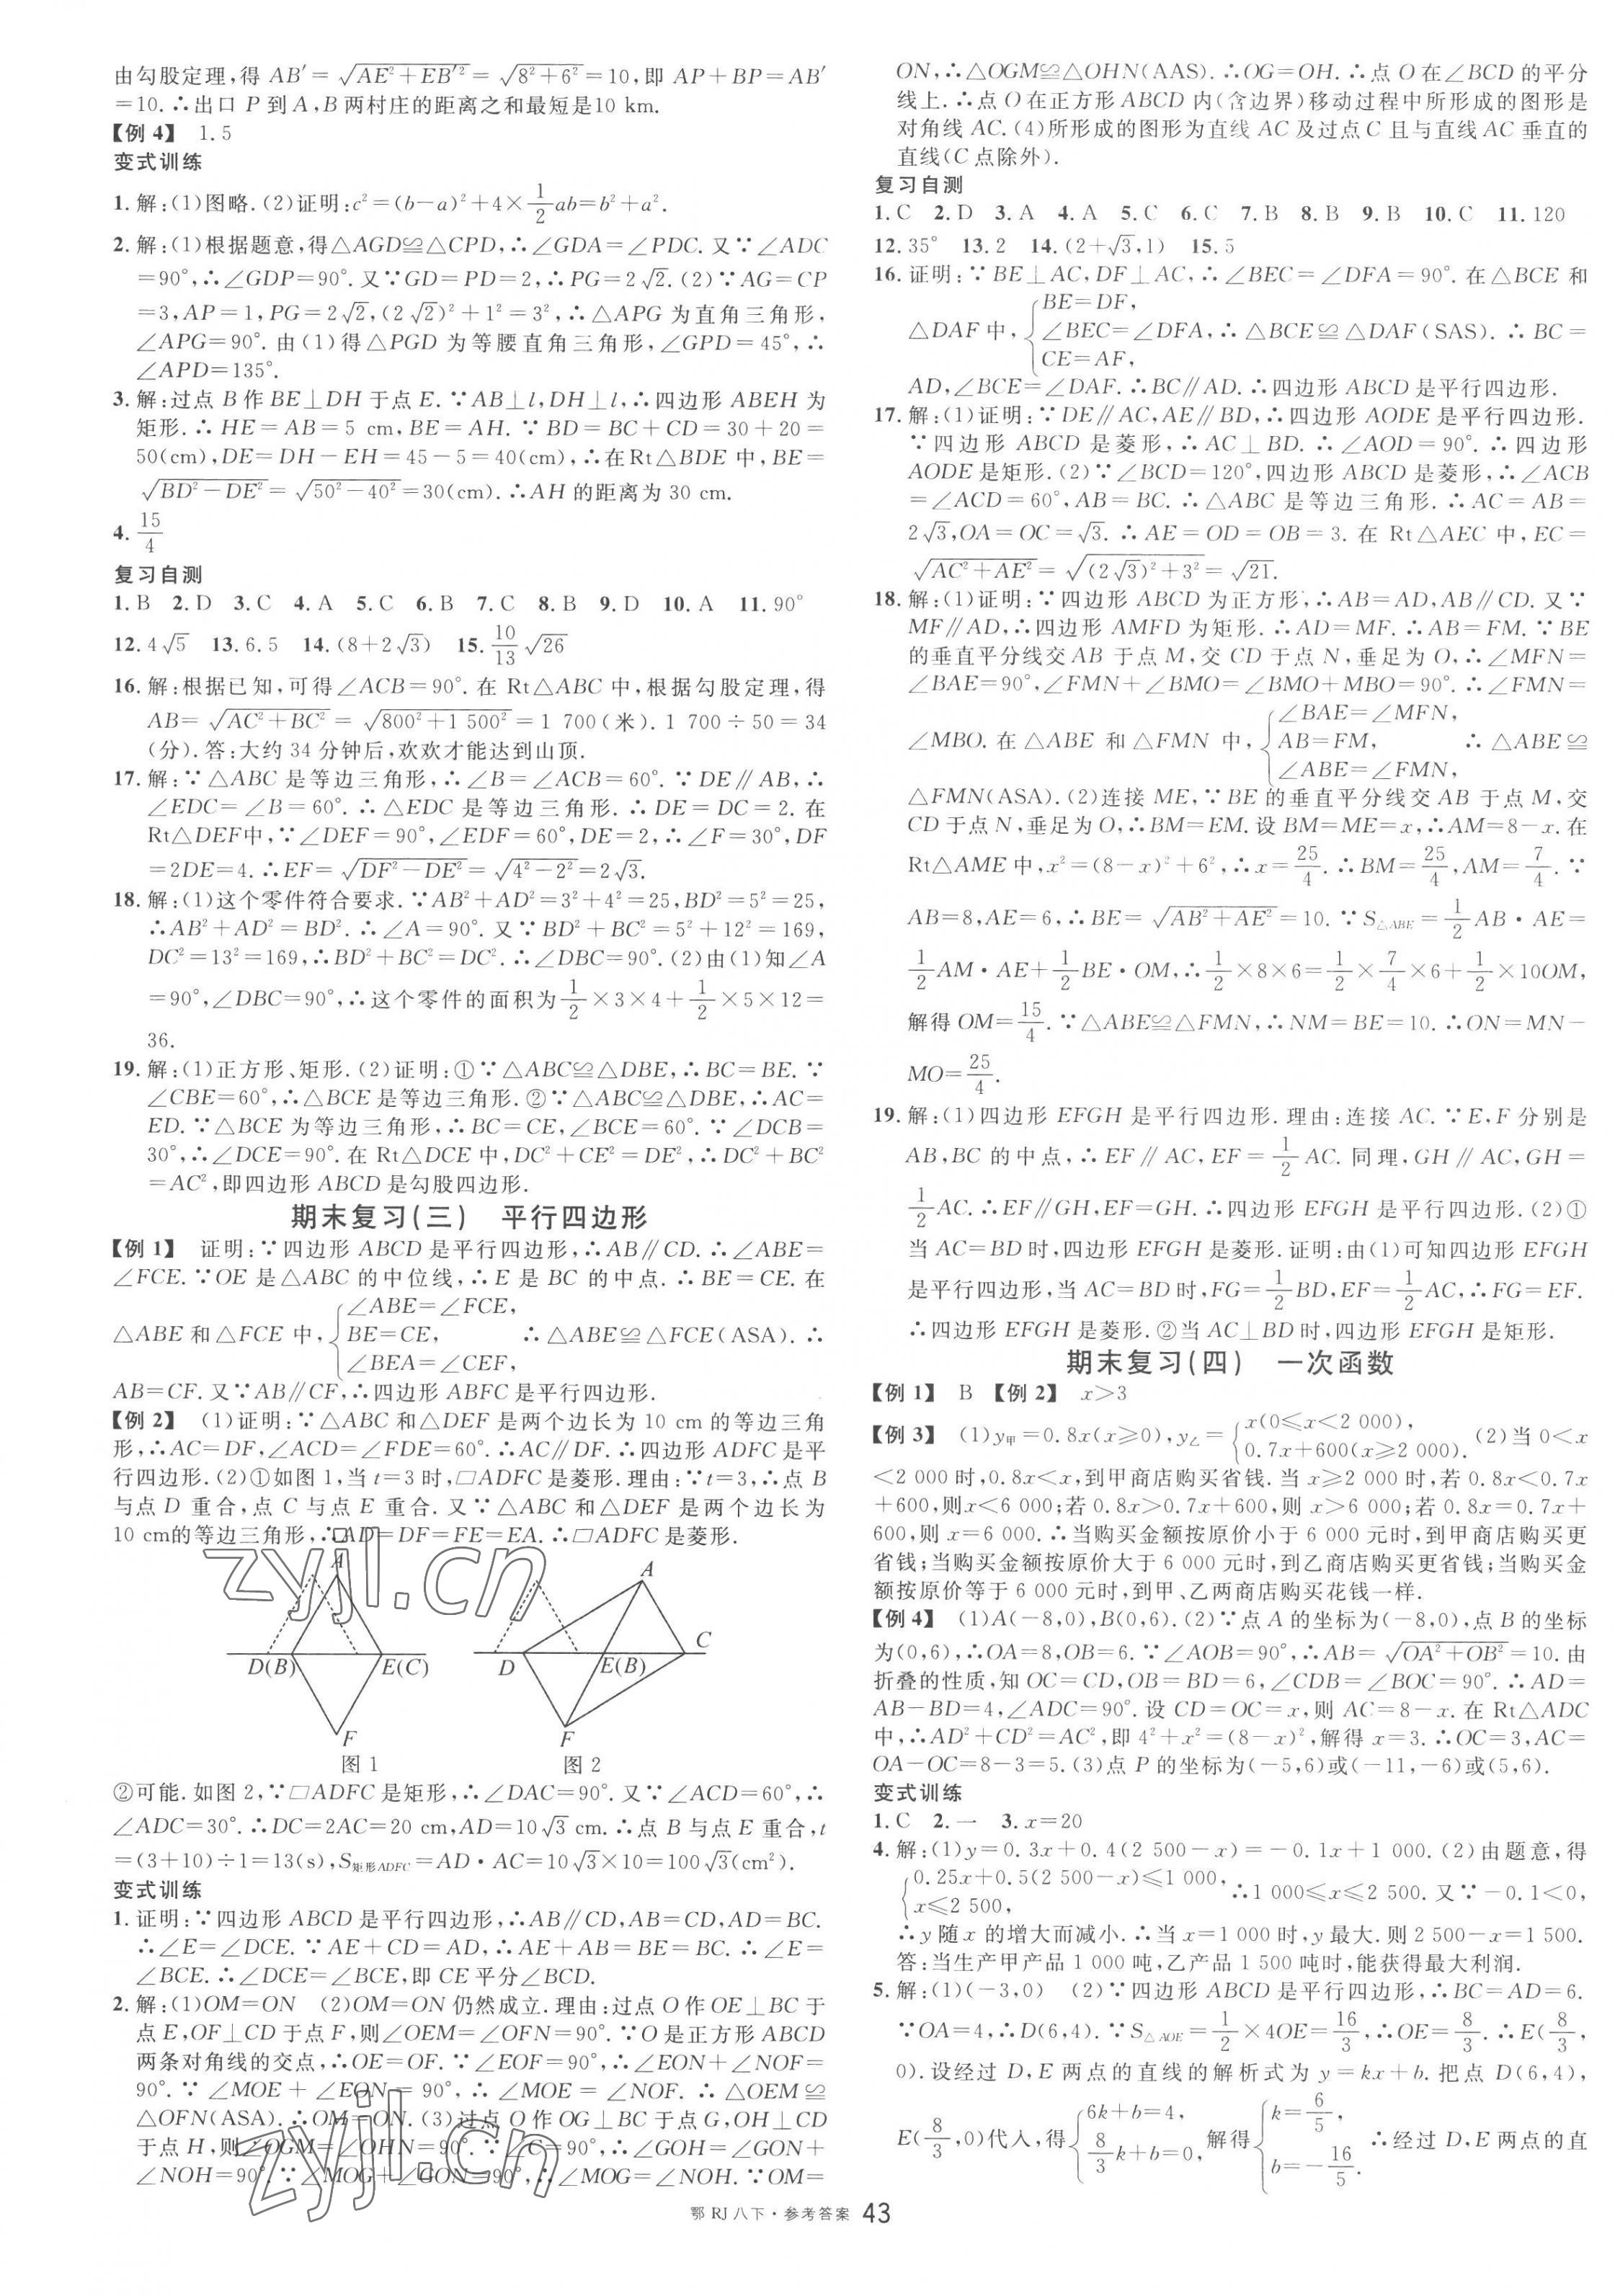 由勾股定理,得 AB′=√(AE²+EB′²)=√(8²+6²)=10,即 AP+BP=AB′
=10.∴出口 P 到 A,B 两村庄的距离之和最短是10 km.
【例 4】 1.5
变式训练
1. 解:(1)图略.(2)证明:c²=(b-a)²+4×1/2ab=b²+a².
2. 解:(1)根据题意,得△AGD≌△CPD,∴∠GDA=∠PDC.又∵∠ADC
=90°,∴∠GDP=90°.又∵GD=PD=2,∴PG=2√2.(2)∵AG=CP
=3,AP=1,PG=2√2,(2√2)²+1²=3²,∴△APG 为直角三角形,
∠APG=90°.由(1)得△PGD 为等腰直角三角形,∠GPD=45°,∴
∠APD=135°.
3. 解:过点 B 作 BE⊥DH 于点 E.∵AB⊥l,DH⊥l,∴四边形 ABEH 为
矩形.∴HE=AB=5 cm,BE=AH.∵BD=BC+CD=30+20=
50(cm),DE=DH-EH=45-5=40(cm),∴在Rt△BDE 中,BE=
√(BD²-DE²)=√(50²-40²)=30(cm).∴AH 的距离为 30 cm.
4. 15/4
复习自测
1. B 2. D 3. C 4. A 5. C 6. B 7. C 8. B 9. D 10. A 11. 90°
12. 4√5 13. 6.5 14. (8+2√3) 15. 10/13√26
16. 解:根据已知,可得∠ACB=90°.在 Rt△ABC 中,根据勾股定理,得
AB=√(AC²+BC²)=√(800²+1 500²)=1 700(米).1 700÷50=34
(分).答:大约 34 分钟后,欢欢才能达到山顶.
17. 解:∵△ABC 是等边三角形,∴∠B=∠ACB=60°.∵DE∥AB,∴
∠EDC=∠B=60°.∴△EDC 是等边三角形.∴DE=DC=2.在
Rt△DEF中,∵∠DEF=90°,∠EDF=60°,DE=2,∴∠F=30°,DF
=2DE=4.∴EF=√(DF²-DE²)=√(4²-2²)=2√3.
18. 解:(1)这个零件符合要求.∵AB²+AD²=3²+4²=25,BD²=5²=25,
∴AB²+AD²=BD².∴∠A=90°.又∵BD²+BC²=5²+12²=169,
DC²=13²=169,∴BD²+BC²=DC².∴∠DBC=90°.(2)由(1)知∠A
=90°,∠DBC=90°,∴这个零件的面积为1/2×3×4+1/2×5×12=
36.
19. 解:(1)正方形、矩形.(2)证明:①∵△ABC≌△DBE,∴BC=BE.∵
∠CBE=60°,∴△BCE 是等边三角形.②∵△ABC≌△DBE,∴AC=
ED.∵△BCE 为等边三角形,∴BC=CE,∠BCE=60°.∵∠DCB=
30°,∴∠DCE=90°.在 Rt△DCE 中,DC²+CE²=DE²,∴DC²+BC²
=AC²,即四边形 ABCD 是勾股四边形.
期末复习(三) 平行四边形
【例 1】 证明:∵四边形 ABCD 是平行四边形,∴AB∥CD.∴∠ABE=
∠FCE.∵OE 是△ABC 的中位线,∴E 是 BC 的中点.∴BE=CE.在
△ABE 和△FCE 中,{∠ABE=∠FCE, BE=CE, ∠BEA=∠CEF, ∴△ABE≌△FCE(ASA).∴
AB=CF.又∵AB∥CF,∴四边形 ABFC 是平行四边形.
【例 2】 (1)证明:∵△ABC 和△DEF 是两个边长为 10 cm 的等边三角
形,∴AC=DF,∠ACD=∠FDE=60°.∴AC∥DF.∴四边形 ADFC 是平
行四边形.(2)①如图 1,当 t=3 时,□ADFC 是菱形.理由:∵t=3,∴点 B
与点 D 重合,点 C 与点 E 重合.又∵△ABC 和△DEF 是两个边长为
10 cm的等边三角形,∴AD=DF=FE=EA.∴□ADFC 是菱形.
zyjl.cn
A
A
D(B)
E(C)
D
E(B)
C
F
F
图 1
图 2
②可能.如图 2,∵□ADFC 是矩形,∴∠DAC=90°.又∵∠ACD=60°,∴
∠ADC=30°.∴DC=2AC=20 cm,AD=10√3 cm.∴点 B 与点 E 重合,t
=(3+10)÷1=13(s),S矩形ADFC=AD·AC=10√3×10=100√3(cm²).
变式训练
1. 证明:∵四边形 ABCD 是平行四边形,∴AB∥CD,AB=CD,AD=BC.
∴∠E=∠DCE.∵AE+CD=AD,∴AE+AB=BE=BC.∴∠E=
∠BCE.∴∠DCE=∠BCE,即 CE 平分∠BCD.
2. 解:(1)OM=ON (2)OM=ON 仍然成立.理由:过点 O 作 OE⊥BC 于
点 E,OF⊥CD 于点 F,则∠OEM=∠OFN=90°.∵O 是正方形 ABCD
两条对角线的交点,∴OE=OF.∵∠EOF=90°,∴∠EON+∠NOF=
90°.∵∠MOE+∠EON=90°,∴∠MOE=∠NOF.∴△OEM≌
△OFN(ASA).∴OM=ON.(3)过点 O 作 OG⊥BC 于点 G,OH⊥CD
于点 H,则∠OGM=∠OHN=90°.∵∠C=90°,∴∠GOH=∠GON+
∠NOH=90°.∵∠MOG+∠GON=90°,∴∠MOG=∠NOH.∵OM=
zyjl.cn
ON,∴△OGM≌△OHN(AAS).∴OG=OH.∴点 O 在∠BCD 的平分
线上.∴点 O 在正方形 ABCD 内(含边界)移动过程中所形成的图形是
对角线 AC.(4)所形成的图形为直线 AC 及过点 C 且与直线 AC 垂直的
直线(C 点除外).
复习自测
1. C 2. D 3. A 4. A 5. C 6. C 7. B 8. B 9. B 10. C 11. 120
12. 35° 13. 2 14. (2+√3,1) 15. 5
16. 证明:∵BE⊥AC,DF⊥AC,∴∠BEC=∠DFA=90°.在△BCE 和
△DAF 中,{BE=DF, ∠BEC=∠DFA, CE=AF, ∴△BCE≌△DAF(SAS).∴BC=
AD,∠BCE=∠DAF.∴BC∥AD.∴四边形 ABCD 是平行四边形.
17. 解:(1)证明:∵DE∥AC,AE∥BD,∴四边形 AODE 是平行四边形.
∵四边形 ABCD 是菱形,∴AC⊥BD.∴∠AOD=90°.∴四边形
AODE 是矩形.(2)∵∠BCD=120°,四边形 ABCD 是菱形,∴∠ACB
=∠ACD=60°,AB=BC.∴△ABC 是等边三角形.∴AC=AB=
2√3,OA=OC=√3.∴AE=OD=OB=3.在 Rt△AEC 中,EC=
√(AC²+AE²)=√((2√3)²+3²)=√21.
18. 解:(1)证明:∵四边形 ABCD 为正方形,∴AB=AD,AB∥CD.又∵
MF∥AD,∴四边形 AMFD 为矩形.∴AD=MF.∴AB=FM.∵BE
的垂直平分线交 AB 于点 M,交 CD 于点 N,垂足为 O,∴∠MFN=
∠BAE=90°,∠FMN+∠BMO=∠BMO+MBO=90°.∴∠FMN=
∠MBO.在△ABE 和△FMN 中,{∠BAE=∠MFN, AB=FM, ∠ABE=∠FMN, ∴△ABE≌
△FMN(ASA).(2)连接 ME,∵BE 的垂直平分线交 AB 于点 M,交
CD 于点 N,垂足为 O,∴BM=EM.设 BM=ME=x,∴AM=8-x.在
Rt△AME 中,x²=(8-x)²+6²,∴x=25/4.∴BM=25/4,AM=7/4.∵
AB=8,AE=6,∴BE=√(AB²+AE²)=10.∵S△ABE=1/2AB·AE=
1/2AM·AE+1/2BE·OM,∴1/2×8×6=1/2×7/4×6+1/2×10OM,
解得 OM=15/4.∵△ABE≌△FMN,∴NM=BE=10.∴ON=MN-
MO=25/4.
19. 解:(1)四边形 EFGH 是平行四边形.理由:连接 AC.∵E,F 分别是
AB,BC 的中点,∴EF∥AC,EF=1/2AC.同理,GH∥AC,GH=
1/2AC.∴EF∥GH,EF=GH.∴四边形 EFGH 是平行四边形.(2)①
当 AC=BD 时,四边形 EFGH 是菱形.证明:由(1)可知四边形 EFGH
是平行四边形,当 AC=BD 时,FG=1/2BD,EF=1/2AC,∴FG=EF.
∴四边形 EFGH 是菱形.②当 AC⊥BD 时,四边形 EFGH 是矩形.
期末复习(四) 一次函数
【例 1】 B 【例 2】 x>3
【例 3】 (1)y甲=0.8x(x≥0),y乙={x(0≤x<2 000), 0.7x+600(x≥2 000). (2)当 0<x
<2 000 时,0.8x<x,到甲商店购买省钱.当 x≥2 000 时,若 0.8x<0.7x
+600,则x<6 000;若 0.8x>0.7x+600,则 x>6 000;若 0.8x=0.7x+
600,则 x=6 000.∴当购买金额按原价小于 6 000 元时,到甲商店购买更
省钱;当购买金额按原价大于 6 000 元时,到乙商店购买更省钱;当购买金
额按原价等于 6 000 元时,到甲、乙两商店购买花钱一样.
【例 4】 (1)A(-8,0),B(0,6).(2)∵点 A 的坐标为(-8,0),点 B 的坐标
为(0,6),∴OA=8,OB=6.∵∠AOB=90°,∴AB=√(OA²+OB²)=10.由
折叠的性质,知 OC=CD,OB=BD=6,∠CDB=∠BOC=90°.∴AD=
AB-BD=4,∠ADC=90°.设 CD=OC=x,则 AC=8-x.在 Rt△ADC
中,∴AD²+CD²=AC²,即 4²+x²=(8-x)²,解得 x=3.∴OC=3,AC=
OA-OC=8-3=5.(3)点 P 的坐标为(-5,6)或(-11,-6)或(5,6).
变式训练
1. C 2. 一 3. x=20
4. 解:(1)y=0.3x+0.4(2 500-x)=-0.1x+1 000.(2)由题意,得
{0.25x+0.5(2 500-x)≤1 000, x≤2 500, ∴1 000≤x≤2 500.又∵-0.1<0,
∴y 随 x 的增大而减小.∴当 x=1 000 时,y 最大.则 2 500-x=1 500.
答:当生产甲产品 1 000 吨,乙产品 1 500 吨时,能获得最大利润.
5. 解:(1)(-3,0) (2)∵四边形 ABCD 是平行四边形,∴BC=AD=6.
∵OA=4,∴D(6,4).∵S△AOE=1/2×4OE=16/3,∴OE=8/3.∴E(8/3,
0).设经过 D,E 两点的直线的解析式为 y=kx+b.把点 D(6,4),
E(8/3,0)代入,得{6k+b=4, 8/3k+b=0, 解得{k=6/5, b=-16/5. ∴经过 D,E 两点的直
鄂 RJ 八下·参考答案 43